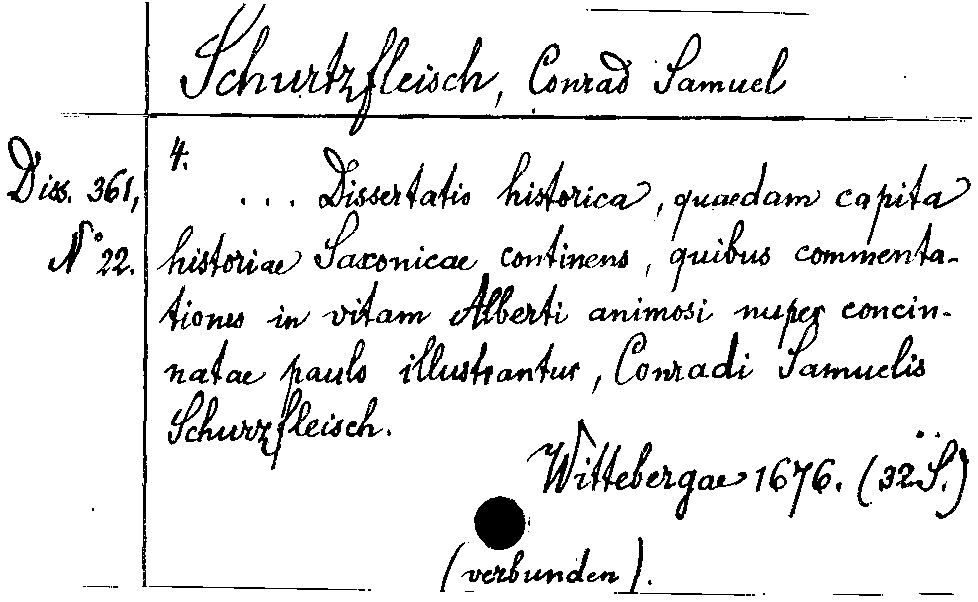 Schurtzfleisch, Conrad Samuel
Diss. 361,
N° 22.
4.
... Dissertatio historica, quaedam capita
historiae Saxonicae continens, quibus commenta-
tiones in vitam Alberti animosi nuper concin-
natae paulo illustrantur, Conradi Samuelis
Schurzfleisch.
Wittebergae 1676. (32 S.)
(verbunden).